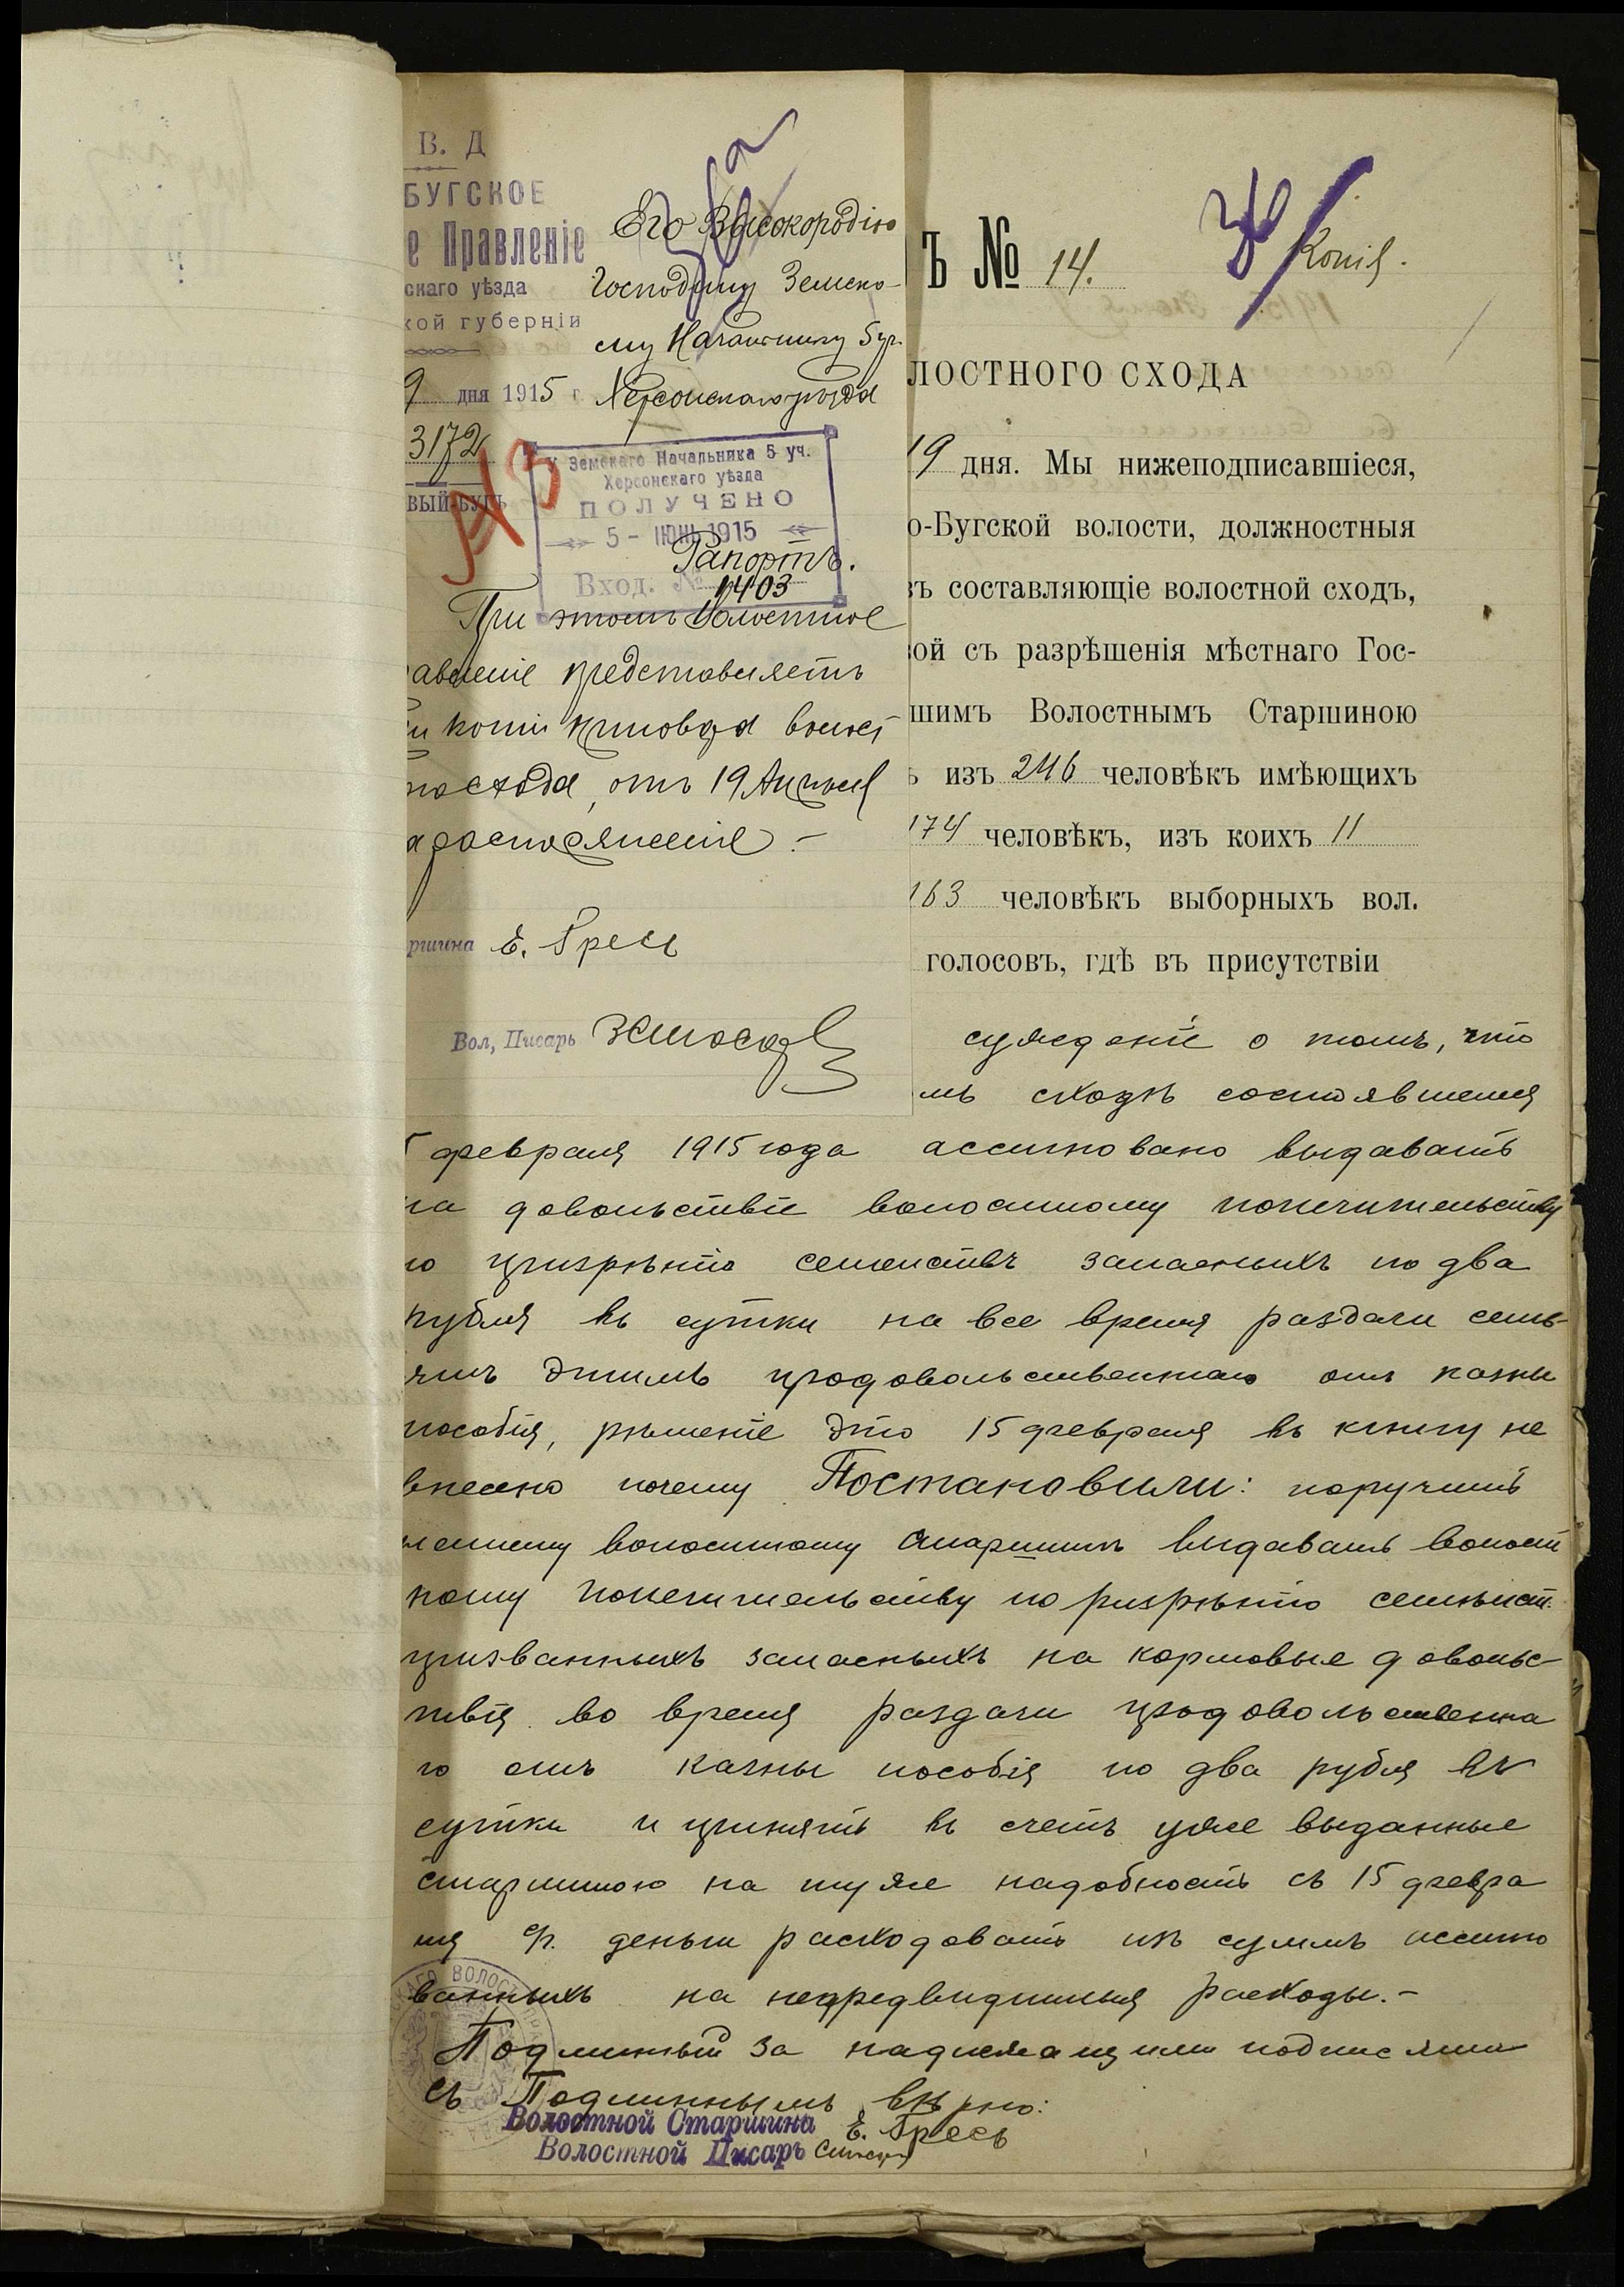 В. Д
БУГСКОЕ
е Правленіе
скаго уѣзда
кой губерніи
9 дня 1915 г
3172
ВЫЙ-БУГЪ
Его Высокородію
Господину Земско-
му Начальнику 5 уч.
Херсонскаго уѣзда
Земскаго Начальника 5 уч.
Херсонскаго уѣзда
ПОЛУЧЕНО
5 - ІЮНЬ 1915
Вход. № 1403
Рапортъ.
При этомъ Волостное
авленіе представляетъ
и копіи приговора волост
го схода, отъ 19 Апрѣля
а распоряженіе. -
ршина Е. Гресь
Вол, Писарь
Ъ № 14.
Копія.
ЛОСТНОГО СХОДА
19 дня. Мы нижеподписавшіеся,
о-Бугской волости, должностныя
ъ составляющіе волостной сходъ,
ой съ разрѣшенія мѣстнаго Гос-
шимъ Волостнымъ Старшиною
ъ изъ 246 человѣкъ имѣющихъ
174 человѣкъ, изъ коихъ 11
163 человѣкъ выборныхъ вол.
голосовъ, гдѣ въ присутствіи
сужденіе о томъ, что
мъ сходѣ состоявшемся
5 февраля 1915 года ассигновано выдавать
на довольствіе волостному попечительству
по призрѣнію семействъ запасныхъ по два
рубля въ сутки на все время раздачи семь-
ямъ этимъ продовольственнаго отъ казны
пособія, рѣшеніе это 15 февраля въ книгу не
внесено почему Постановили: поручить
нашему волостному старшинѣ выдавать волост
ному попечительству по призрѣнію семейст.
призванныхъ запасныхъ на кормовые довольс-
твія во время раздачи продовольственна
го отъ казны пособія по два рубля въ
сутки и принять въ счетъ уже выданные
старшиною на ту же надобность съ 15 февра
ля с/г. деньги расходовать изъ суммъ ассигно
ванныхъ на непредвидимыя расходы. -
Подлинный за надлежащими подписями
Съ Подлиннымъ вѣрно:
Волостной Старшина Е. Гресь
Волостной Писарь